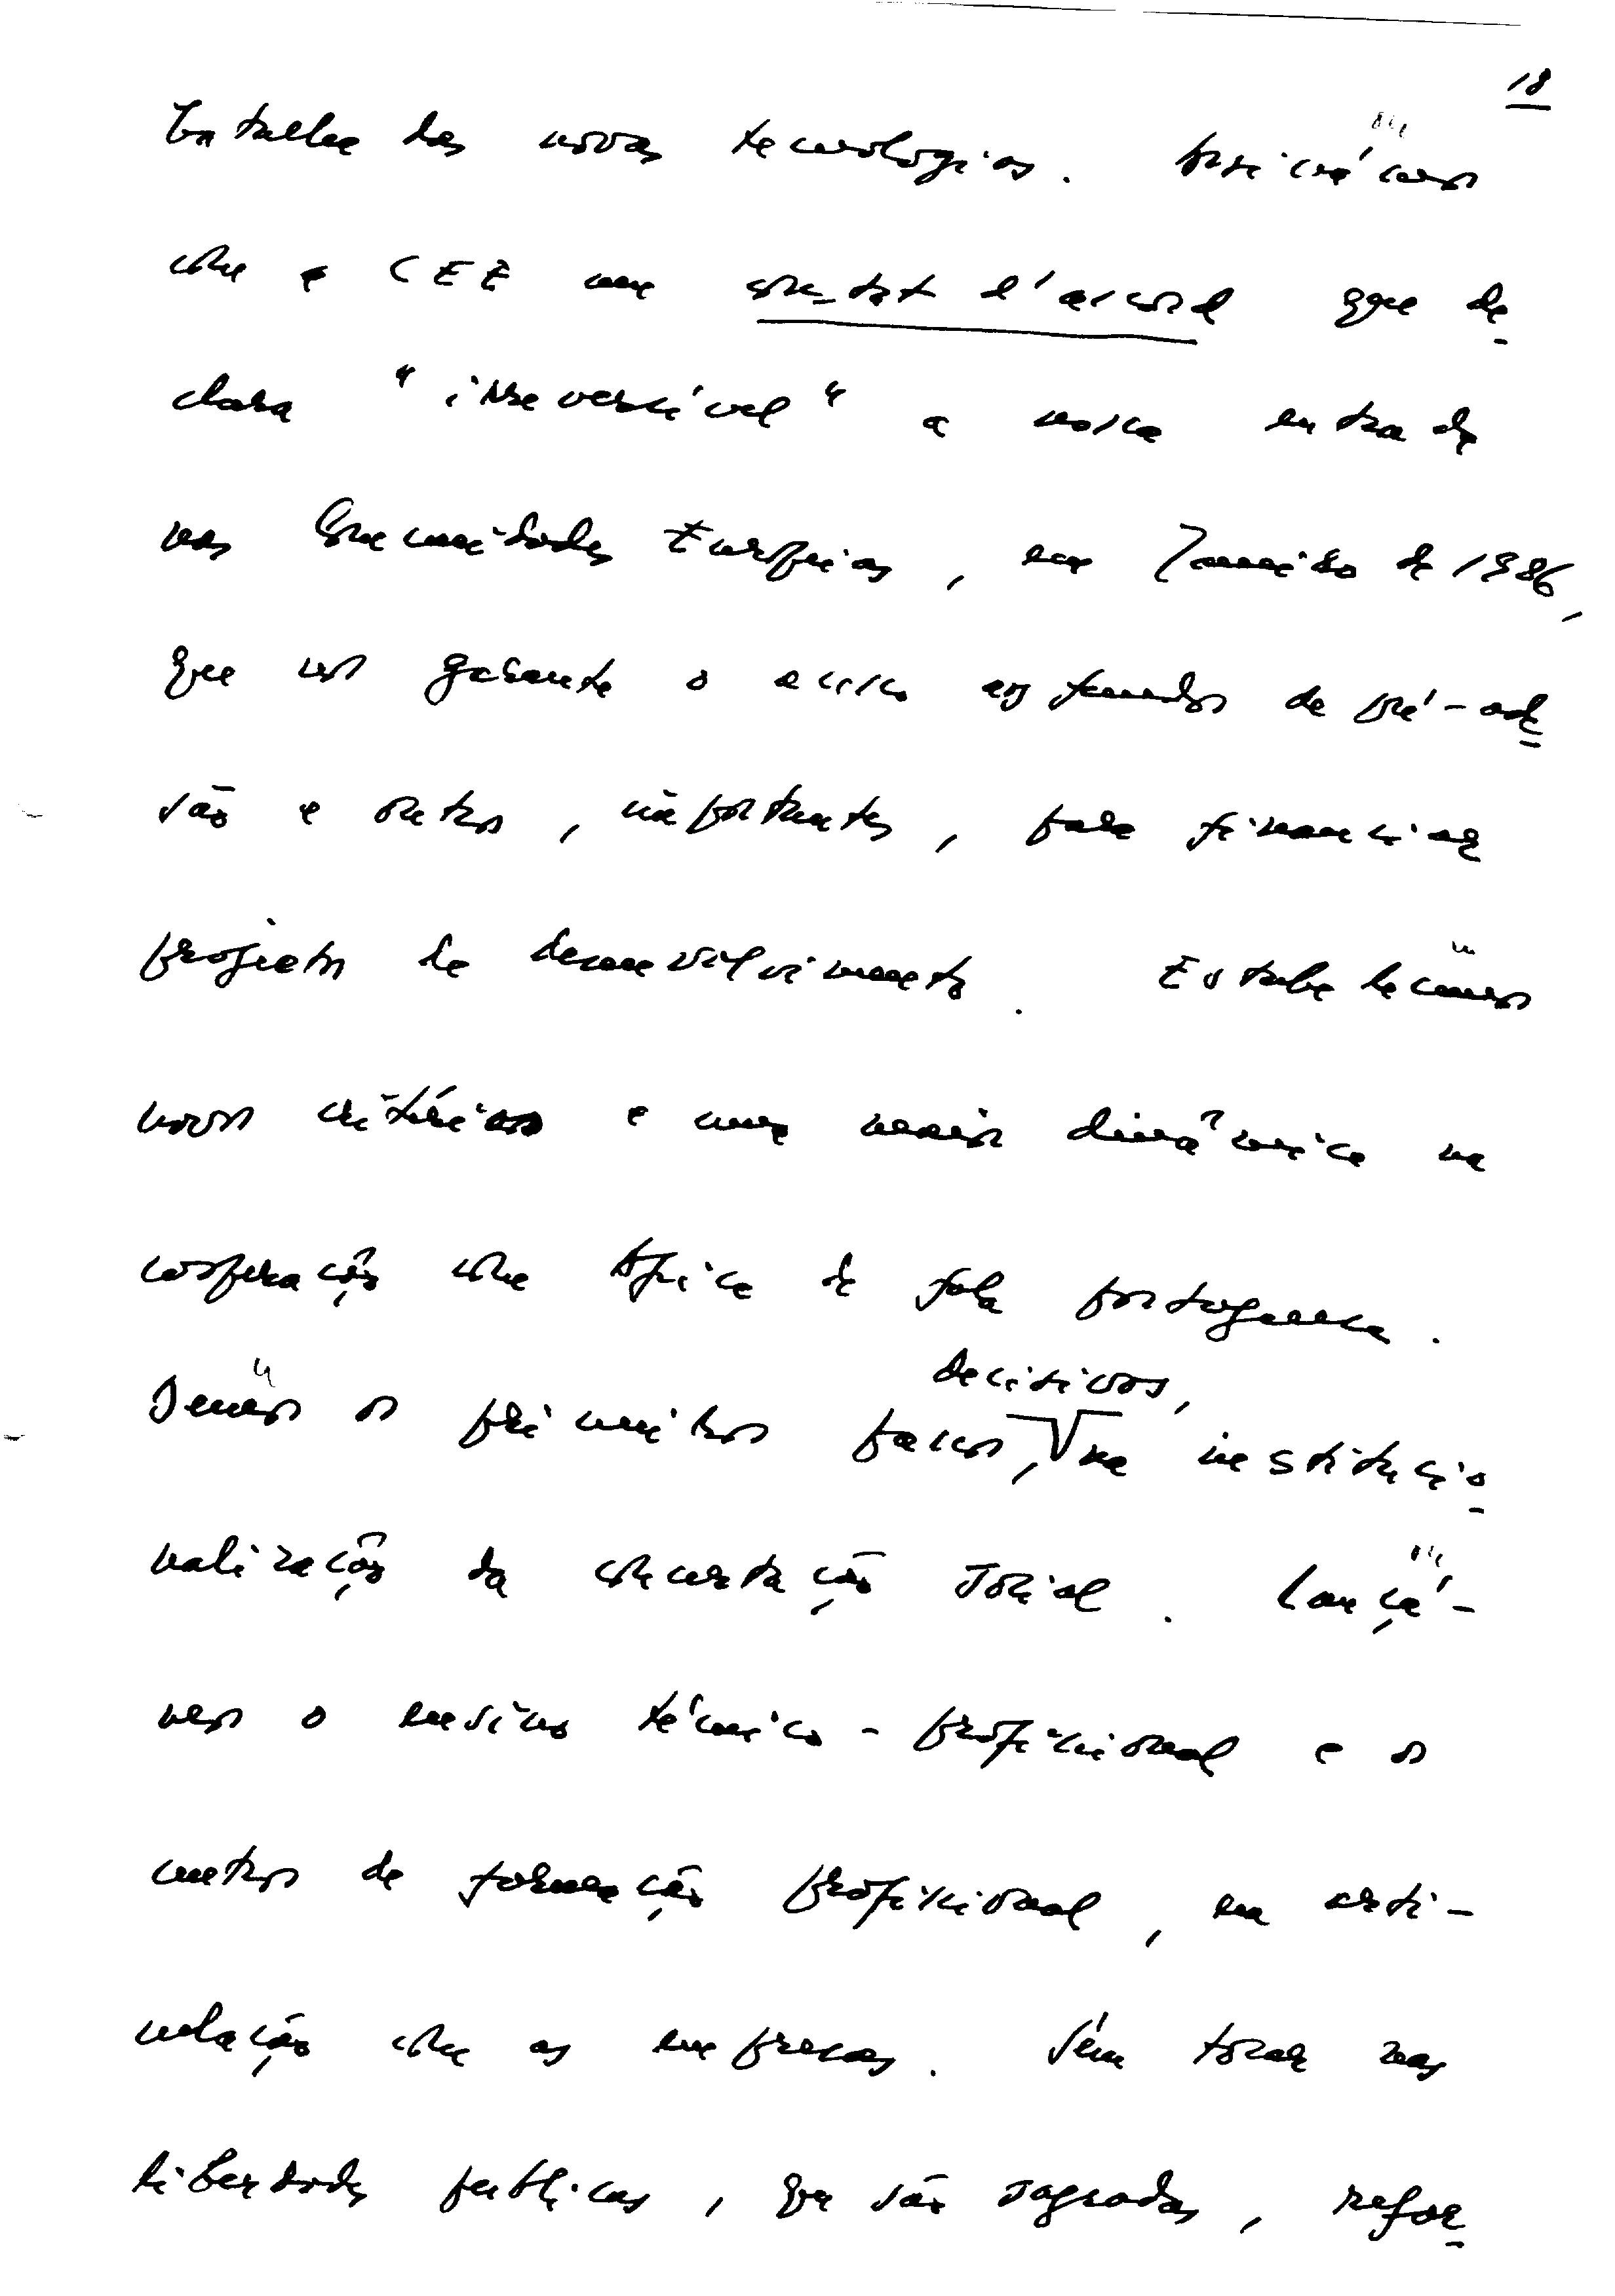 18
batalha das novas tecnologias. Assinámos
com a CEE um constat d'accord que de
clara "irreversível" a nossa entrada
nas Comunidades Europeias, em Janeiro de 1986,
que nos garante o acesso aos fundos de pré-ade
são e outros, importantes, para financiar
projectos de desenvolvimento. Estabelecemos
novos critérios e uma maior dinâmica na
cooperação com África de fala portuguesa.
decisivos,
Demos os primeiros passos, na institucio
nalização da concertação social. Lançá-
mos o ensino técnico-profissional e os
centros de formação profissional, em arti-
culação com as empresas. Sem tocar nas
liberdades públicas, que são sagradas, refor